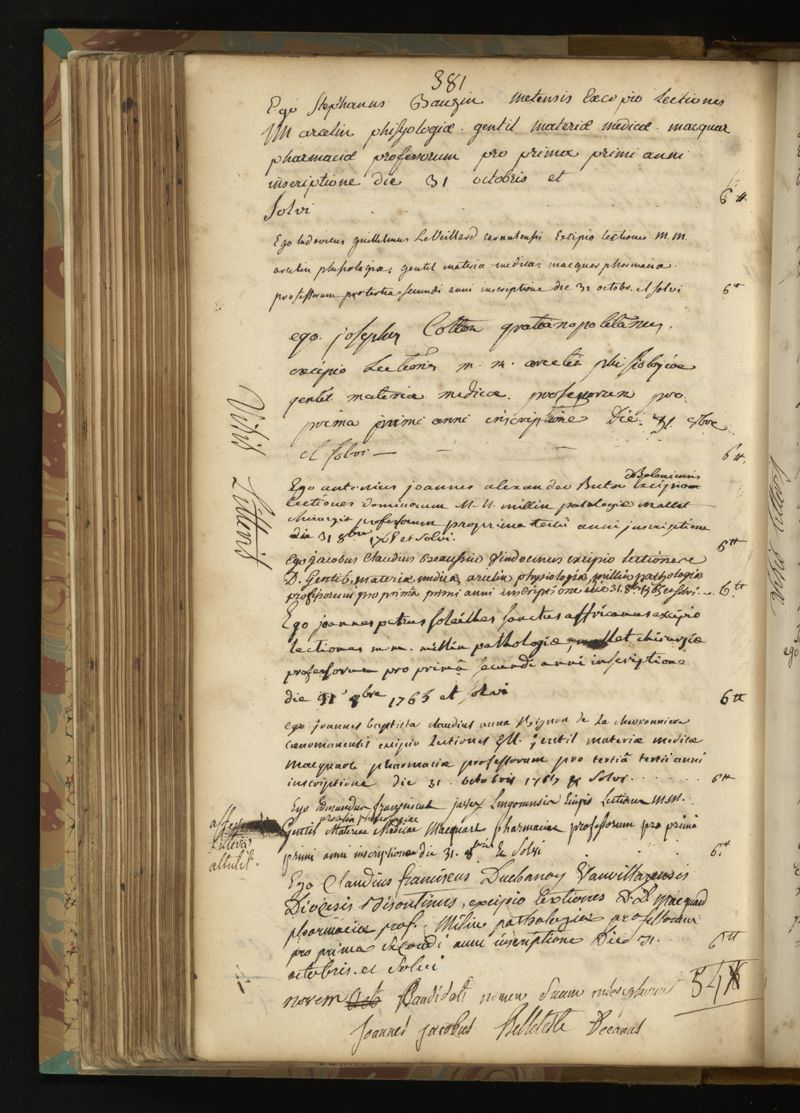 381
Ego Stephanus metensis Excipio Lectiones
MM arcelin phisyologiæ. gentil materiæ medicæ. macquar
pharmaciæ professorum pro prima primi anni
inscriptione die 31 octobris et
Solvi 6 tt
Ego ludovicus guillelmus LeVeillard carnutensis Excipio lectiones M.M.
arcelin phisiologiæ, gentil materia medica, macquer pharmacia
professorum pro tertia secundi anni inscriptione die 31 octobr. et solvi 6 tt
ego. josephus Cotton gratianopolitanus.
excipio Lectiones m. m. arcelin phisiologiæ
gentil materiæ medicæ. professorum pro.
prima primi anni inscriptione Die. 31 8bre
et solvi 6 tt
Visis Litteris
Ego antonius joannes alexander excipio
lectiones dominorum M. M. millin patologiæ mallet
chirurgiæ professorum pro prima tertii anni inscriptione
die 31 8bre 1765 et solvi. 6 tt
Ego jacobus Claudius vindocinus excipio lectiones
D. Gentil, materiæ medicæ, arcelin physiologiæ, millin pathologiæ
professorum pro prima primi anni inscriptione die 31. 8bris 1765 et solvi. 6 tt
Ego joannes petrus excipio
lectiones m.m. millin pathologiæ, mallet chirurgiæ
professorum pro primâ secundi anni inscriptione
die 31 8bre 1765 et solvi 6 tt
ego joannes baptista claudius anna De la
cenomanensis excipio Lectiones MM. gentil materiæ medicæ
macquart pharmaciæ professorum pro tertiâ tertii anni
inscriptione die 31. octobris 1765 & Solvi 6 tt
Ego Edmundus franciscus Lingonensis Excipio Lectiones M.M.
Gentil Materiæ Medicæ Macquart pharmaciæ professorum pro prima
primi anni inscriptione die 31. 8bris & Solvi 6 tt
attulit.
Ego Claudius franciscus Duchanoy
Diocesis Bisontinus, excipio lectiones D.D. Macquard
pharmaciæ prof. Milin pathologiæ professorum
pro prima secundi anni inscriptione Die 31.
octobris. et Solvi 6 tt
novem Candidati nomen suum 54 tt
Joannes Jacobus Belleteste Decanus